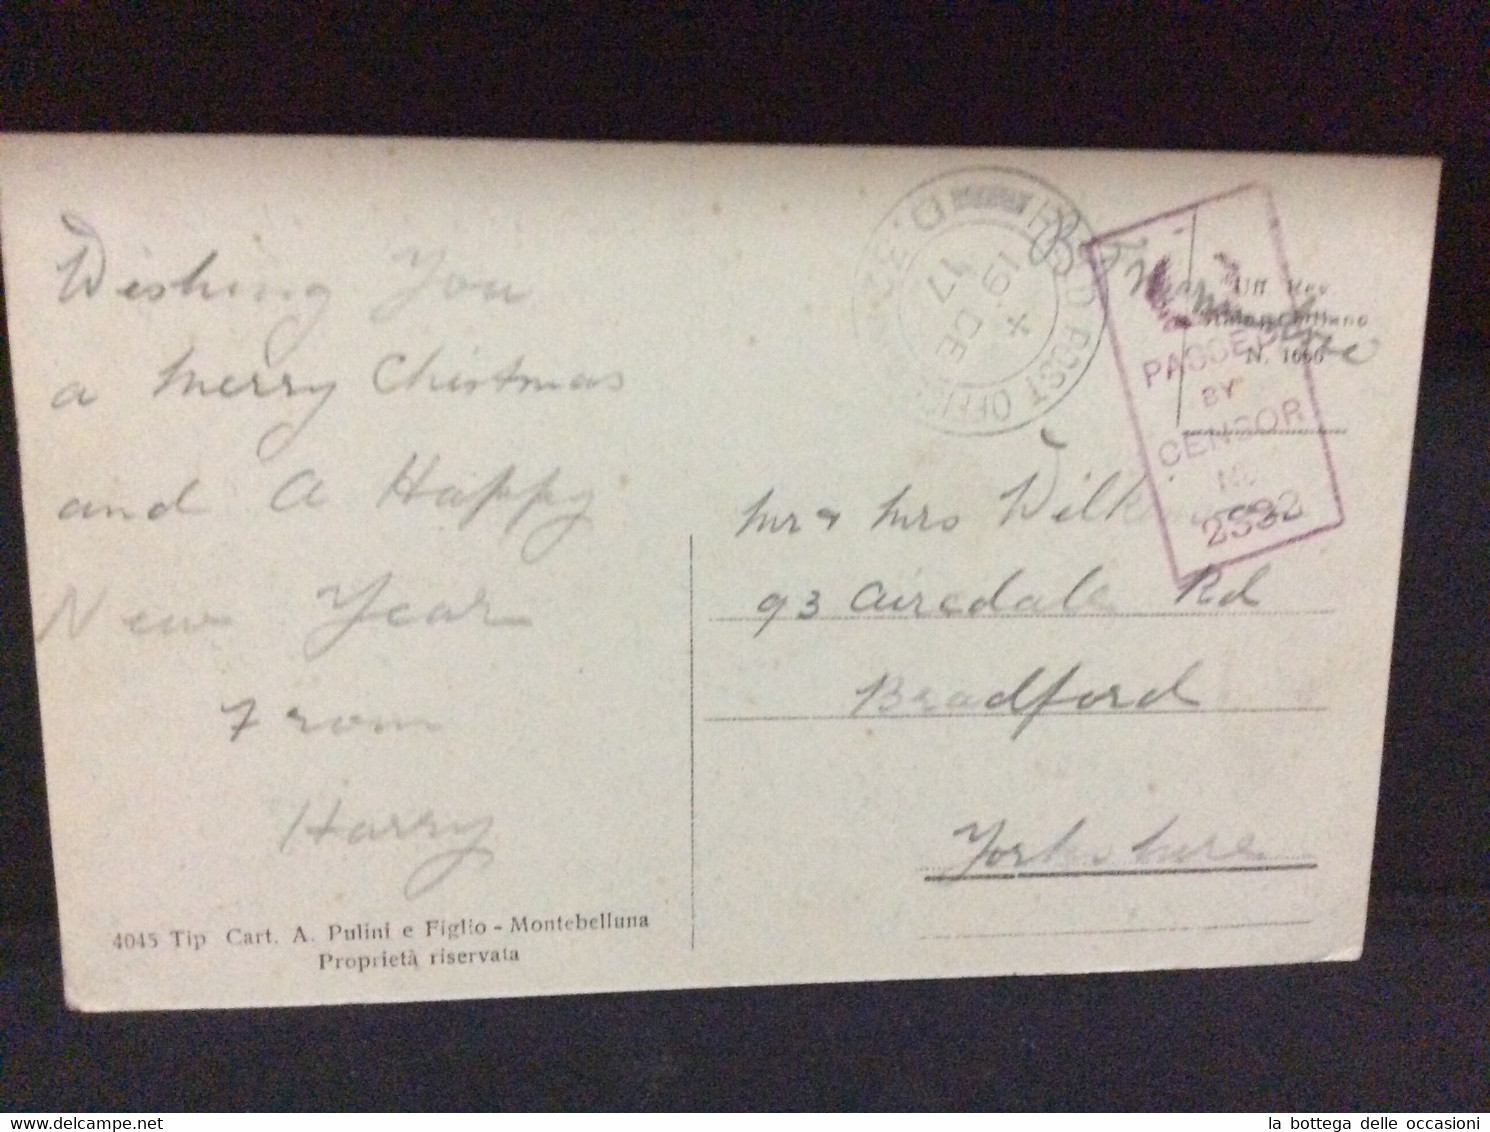 Wishing You
a Merry Christmas
and a Happy
New Year
From
Harry
4045 Tip Cart. A. Pulini e Figlio - Montebelluna
Proprietà riservata
FIELD POST OFFICE
D.32
X
19 DE
17
Uff Rev
N. 1666
PASSED
BY
CENSOR
No
2532
Mr & Mrs
93 Airedale Rd
Bradford
Yorkshire
la bottega delle occasioni